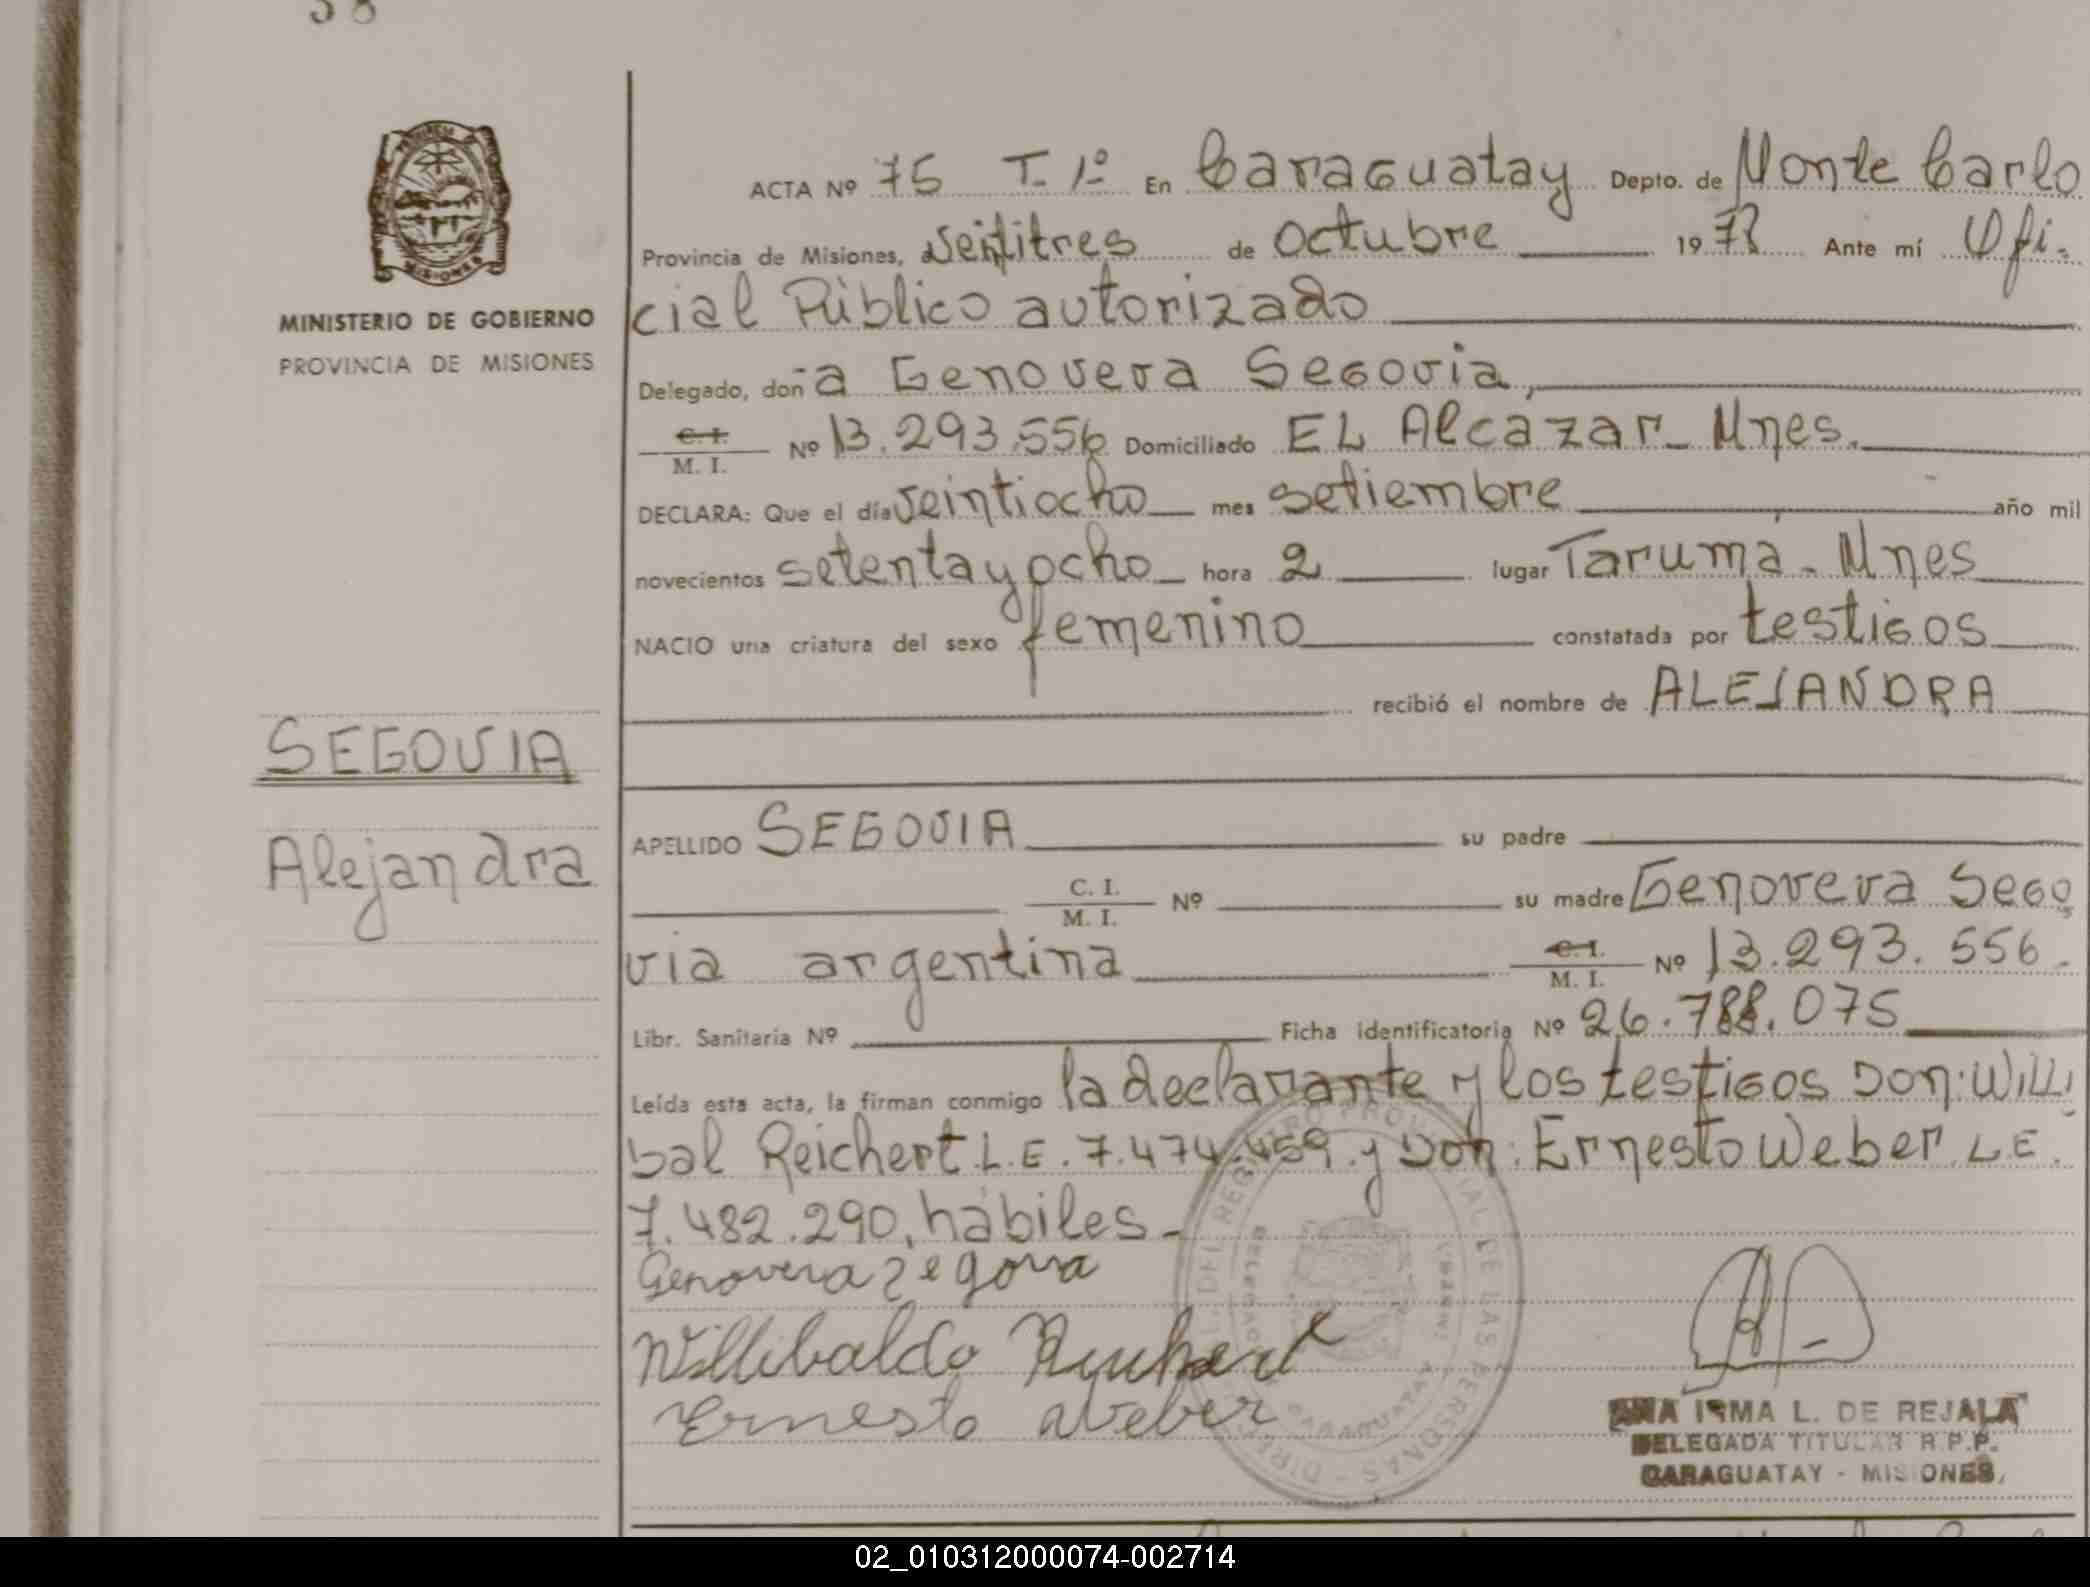 58
MISIONES
MINISTERIO DE GOBIERNO
PROVINCIA DE MISIONES
SEGOVIA
Alejandra
ACTA Nº 75 T. 1º En Caraguatay Depto. de Monte Carlo
Provincia de Misiones, Veintitres de Octubre 1978 Ante mí Ofi-
cial Público autorizado
Delegado, don a Genoveva Segovia,
C. I. M. I. Nº 13.293.556 Domiciliado EL Alcázar - Mnes.
DECLARA: Que el día Veintiocho mes setiembre año mil
novecientos setenta y ocho hora 2 lugar Tarumá - Mnes
NACIO una criatura del sexo femenino constatada por testigos
recibió el nombre de ALEJANDRA
APELLIDO SEGOVIA su padre
C. I. M. I. Nº su madre Genoveva Sego
via argentina C. I. M. I. Nº 13.293.556.
Libr. Sanitaria Nº Ficha identificatoria Nº 26.788.075
Leída esta acta, la firman conmigo la declarante y los testigos Don: Willi
bal Reichert L.E. 7.474.459 y Don: Ernesto Weber L.E.
7.482.290, hábiles -
Genoveva Segova
Willibaldo Reichert
Ernesto Weber
DIREC. DEL REGISTRO PROVINCIAL DE LAS PERSONAS
DELEGACION
CARAGUATAY
ANA IRMA L. DE REJALA
DELEGADA TITULAR R.P.P.
CARAGUATAY - MISIONES
02_010312000074-002714